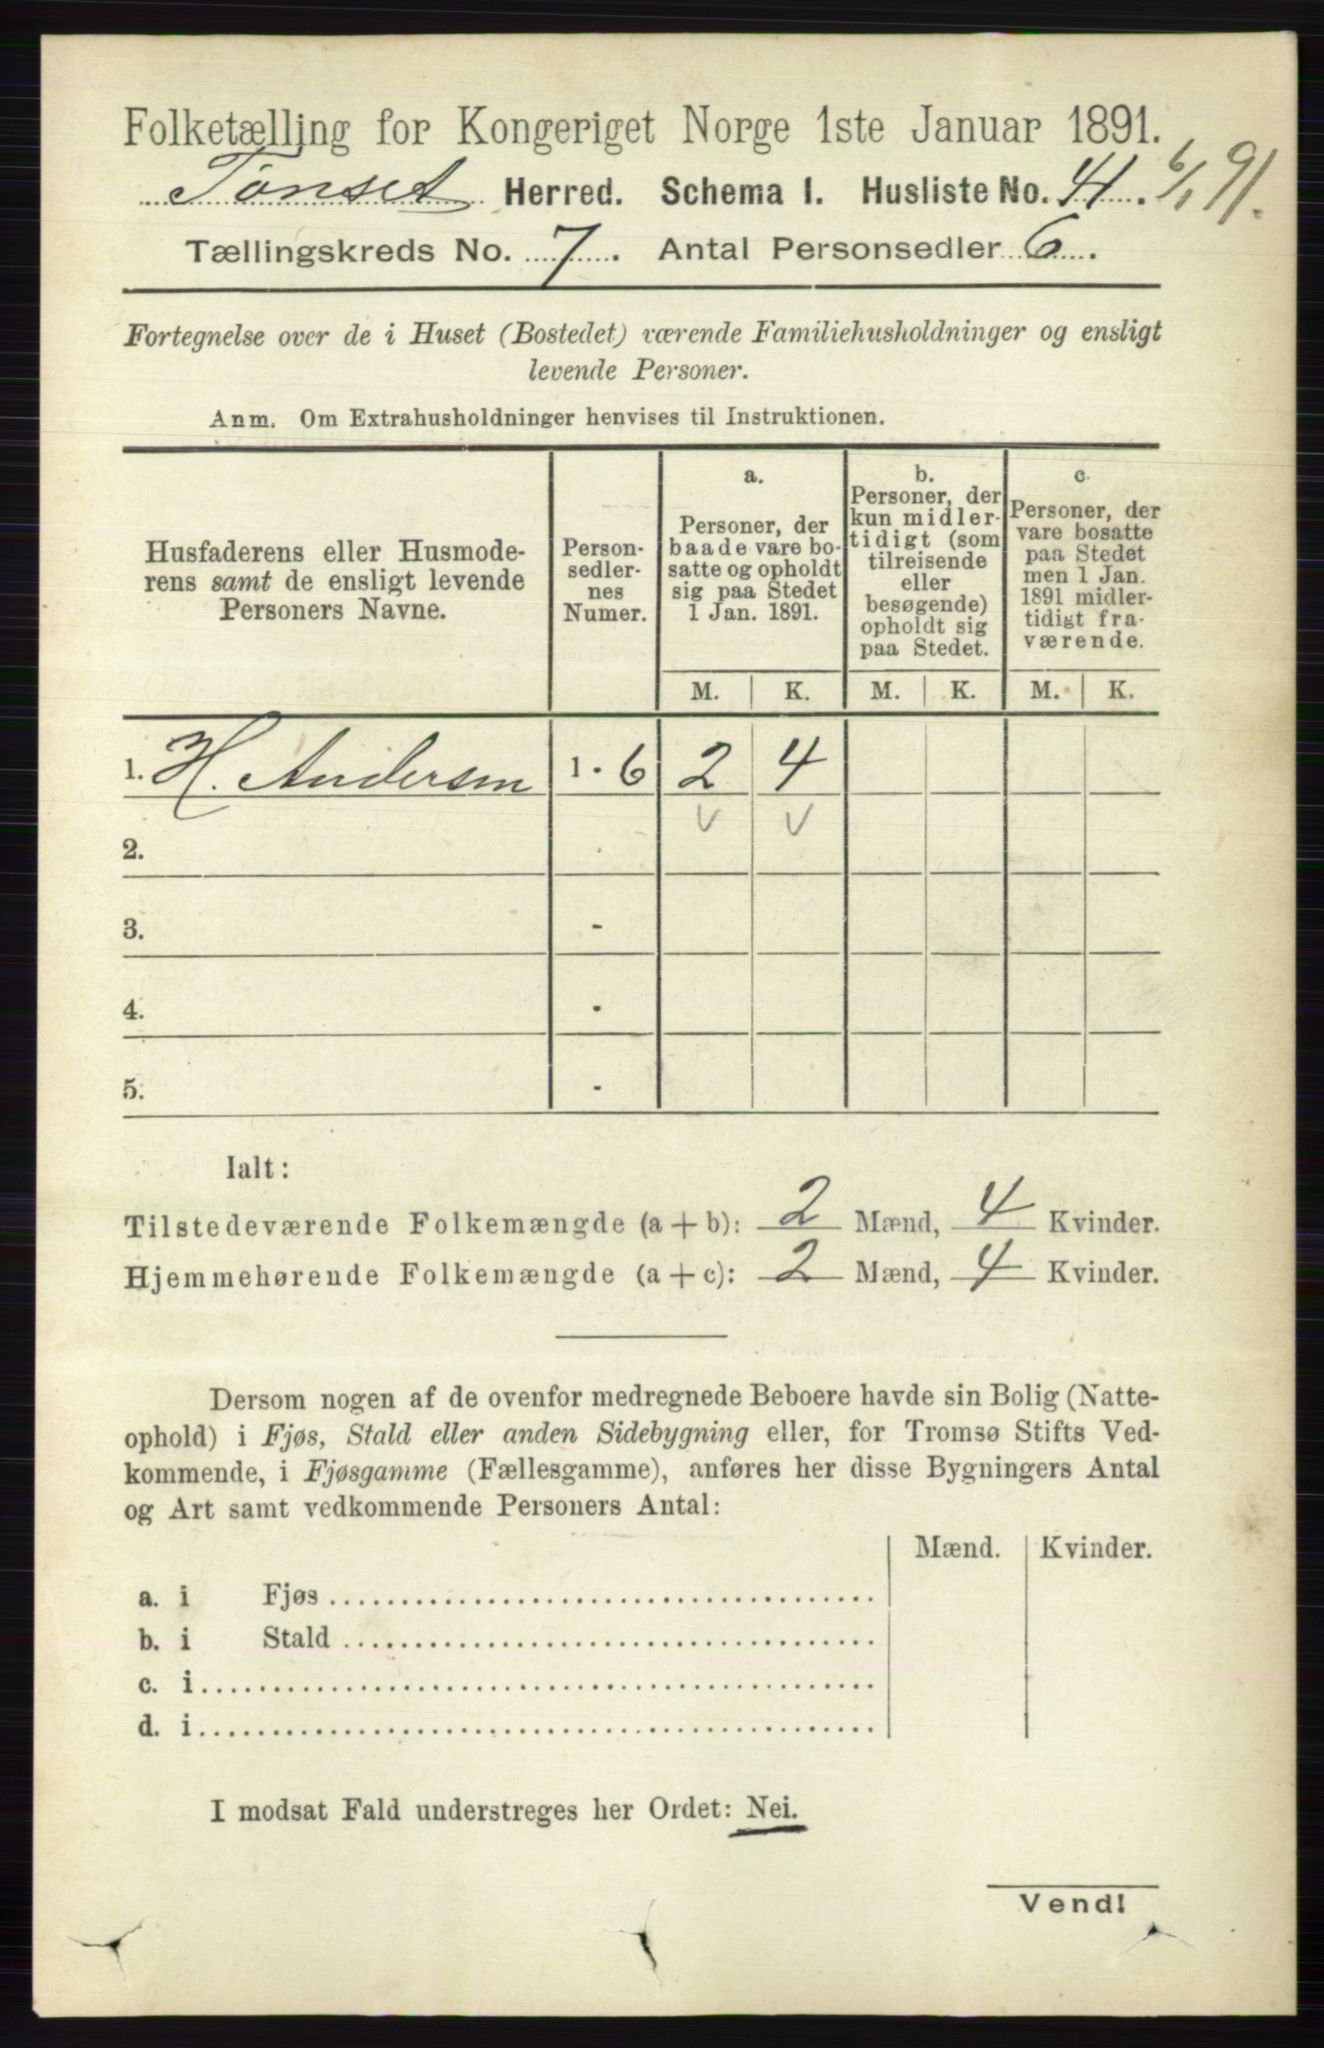 Folketælling for Kongeriget Norge 1ste Januar 1891.
Tønset Herred. Schema 1. Husliste No. 41. 6/1 91.
Tællingskreds No. 7. Antal Personsedler 6.
Fortegnelse over de i Huset (Bostedet) værende Familiehusholdninger og ensligt
levende Personer.
Anm. Om Extrahusholdninger henvises til Instruktionen.
Husfaderens eller Husmode-
rens samt de ensligt levende
Personers Navne.
Person-
sedler-
nes
Numer.
a.
Personer, der
baade vare bo-
satte og opholdt
sig paa Stedet
1 Jan. 1891.
b.
Personer, der
kun midler-
tidigt (som
tilreisende
eller
besøgende)
opholdt sig
paa Stedet.
c.
Personer, der
vare bosatte
paa Stedet
men 1 Jan.
1891 midler-
tidigt fra-
værende.
M. K. M. K. M. K.
1. H. Andersen 1 - 6 2 4
v v
2.
3. -
4. -
5. -
Ialt:
Tilstedeværende Folkemængde (a + b): 2 Mænd, 4 Kvinder.
Hjemmehørende Folkemængde (a + c): 2 Mænd, 4 Kvinder.
Dersom nogen af de ovenfor medregnede Beboere havde sin Bolig (Natte-
ophold) i Fjøs, Stald eller anden Sidebygning eller, for Tromsø Stifts Ved-
kommende, i Fjøsgamme (Fællesgamme), anføres her disse Bygningers Antal
og Art samt vedkommende Personers Antal:
Mænd. Kvinder.
a. i Fjøs
b. i Stald
c. i
d. i
I modsat Fald understreges her Ordet: Nei.
Vend!